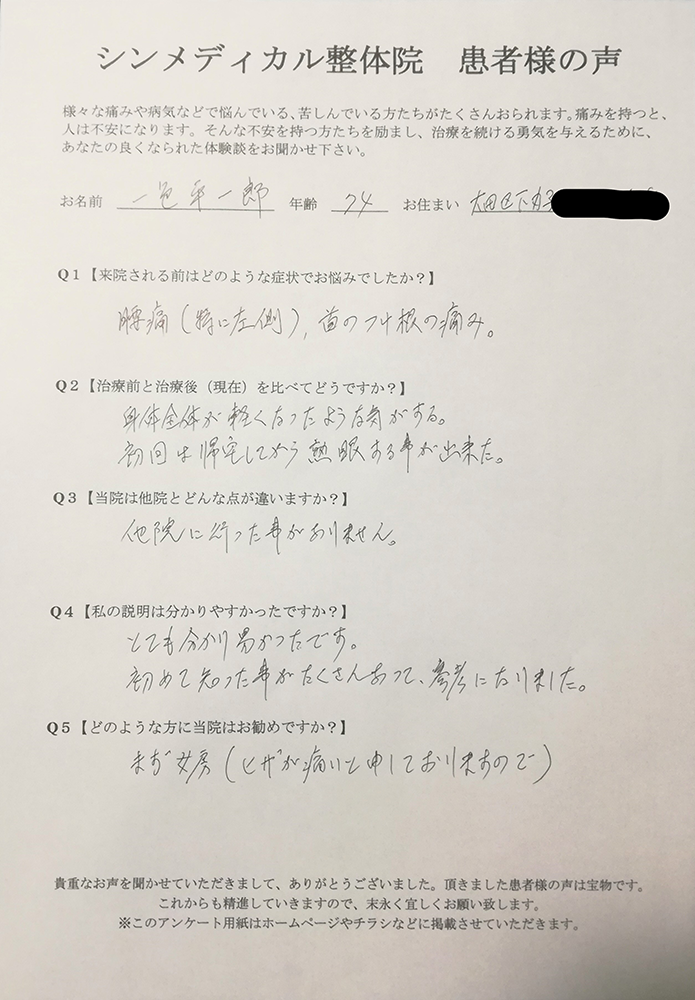 シンメディカル整体院 患者様の声
様々な痛みや病気などで悩んでいる、苦しんでいる方たちがたくさんおられます。痛みを持つと、
人は不安になります。そんな不安を持つ方たちを励まし、治療を続ける勇気を与えるために、
あなたの良くなられた体験談をお聞かせ下さい。
お名前 一色 平一郎 年齢 74 お住まい 大田区下丸子
Q1【来院される前はどのような症状でお悩みでしたか?】
腰痛(特に左側), 首のつけ根の痛み。
Q2【治療前と治療後(現在)を比べてどうですか?】
身体全体が軽くなったような気がする。
初回は帰宅してから熟眠する事が出来た。
Q3【当院は他院とどんな点が違いますか?】
他院に行った事がありません。
Q4【私の説明は分かりやすかったですか?】
とても分かり易かったです。
初めて知った事がたくさんあって、参考になりました。
Q5【どのような方に当院はお勧めですか?】
まず女房(ヒザが痛いと申しておりますので)
貴重なお声を聞かせていただきまして、ありがとうございました。頂きました患者様の声は宝物です。
これからも精進していきますので、末永く宜しくお願い致します。
※このアンケート用紙はホームページやチラシなどに掲載させていただきます。